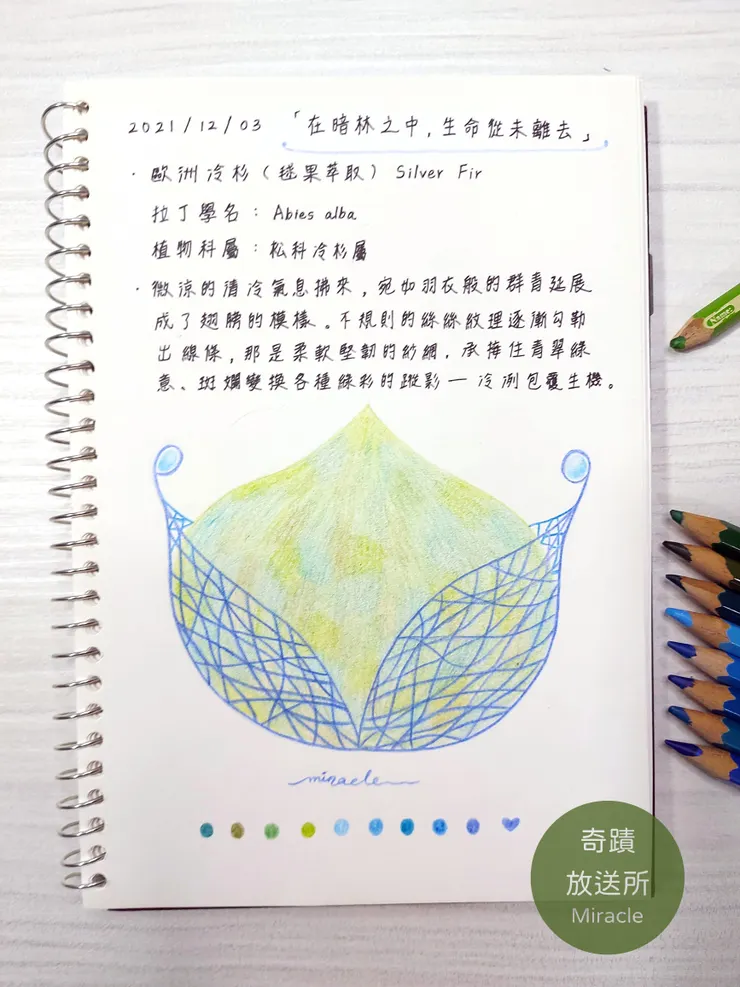 2021/12/03 「在暗林之中,生命從未離去」
·歐洲冷杉(毬果萃取) Silver Fir
拉丁學名:Abies alba
植物科屬:松科冷杉屬
·微涼的清冷氣息拂來,宛如羽衣般的群青延展
成了翅膀的模樣。不規則的絲絲紋理逐漸勾勒
出線條,那是柔軟堅韌的紗網,承接住青翠綠
意、斑斕變換各種綠彩的蹤影—冷冽包覆生機。
miracle
奇蹟
放送所
Miracle